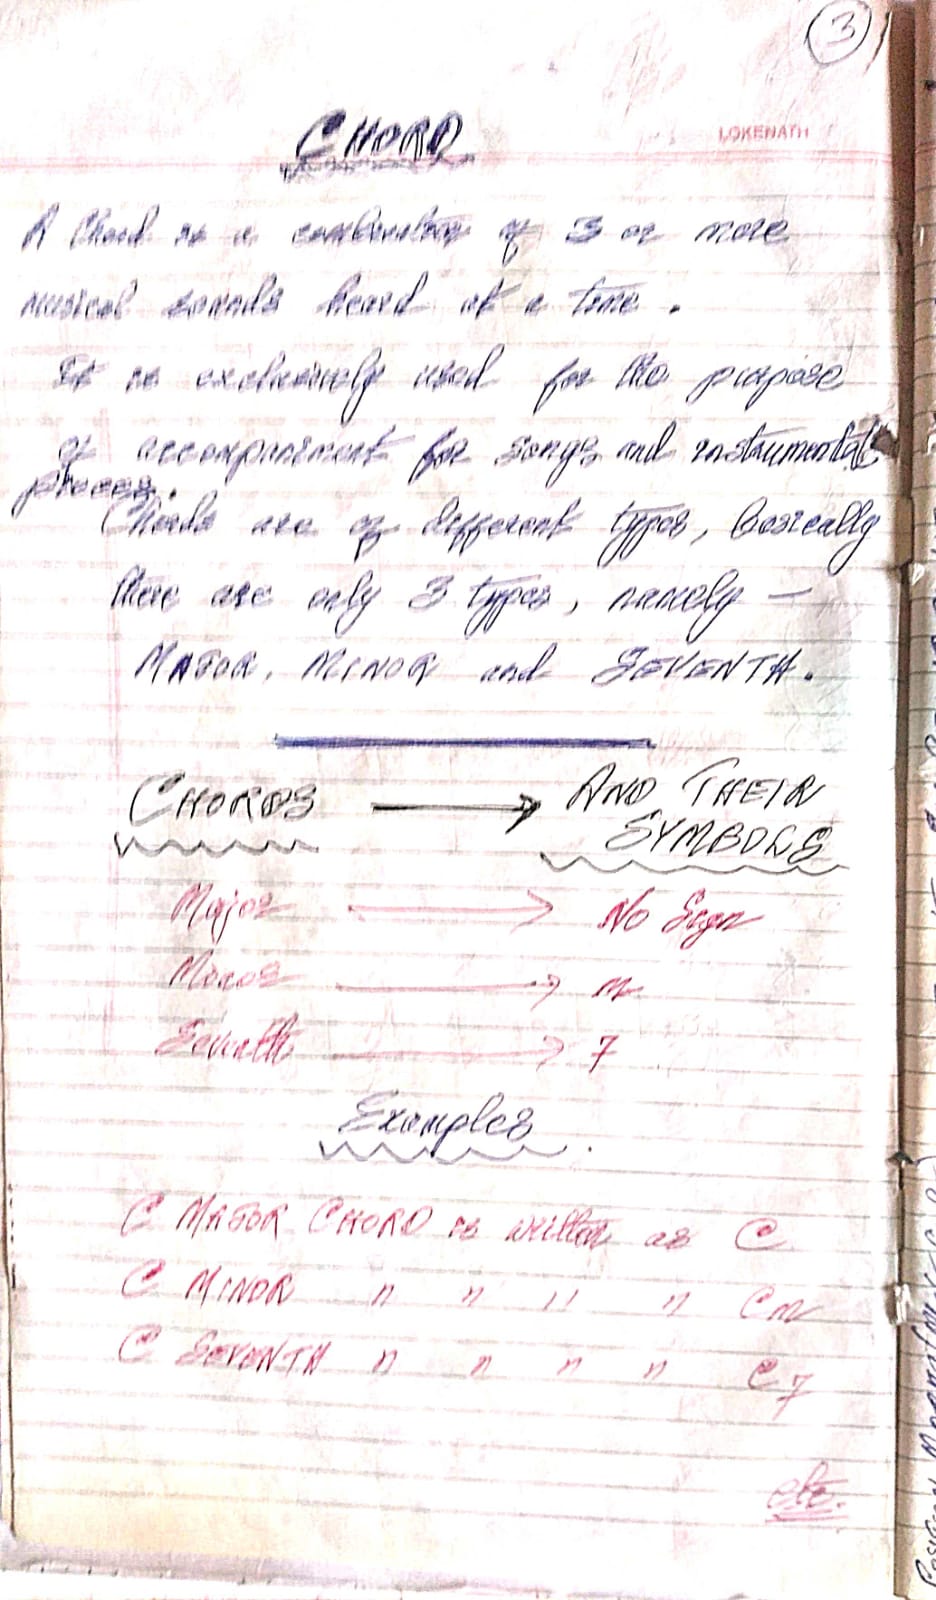 3
CHORD
LOKENATH
A Chord is a combination of 3 or more
musical sounds heard at a time.
It is exclusively used for the purpose
of accompaniment for songs and instrumental
pieces.
Chords are of different types, basically
there are only 3 types, namely —
MAJOR, MINOR and SEVENTH.
CHORDS → AND THEIR
SYMBOLS
Major → No Sign
Minor → m
Seventh → 7
Examples
C MAJOR CHORD is written as C
C MINOR " " " " Cm
C SEVENTH " " " " C7
etc.